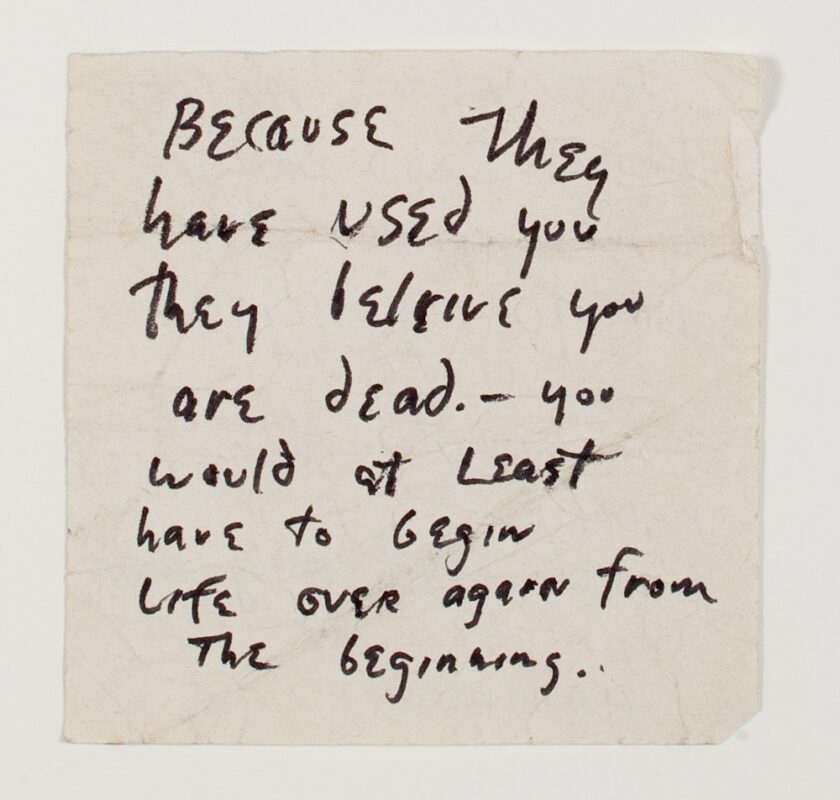 Because they
have used you
they beleive you
are dead. - you
would at Least
have to begin
Life over again from
The beginning..